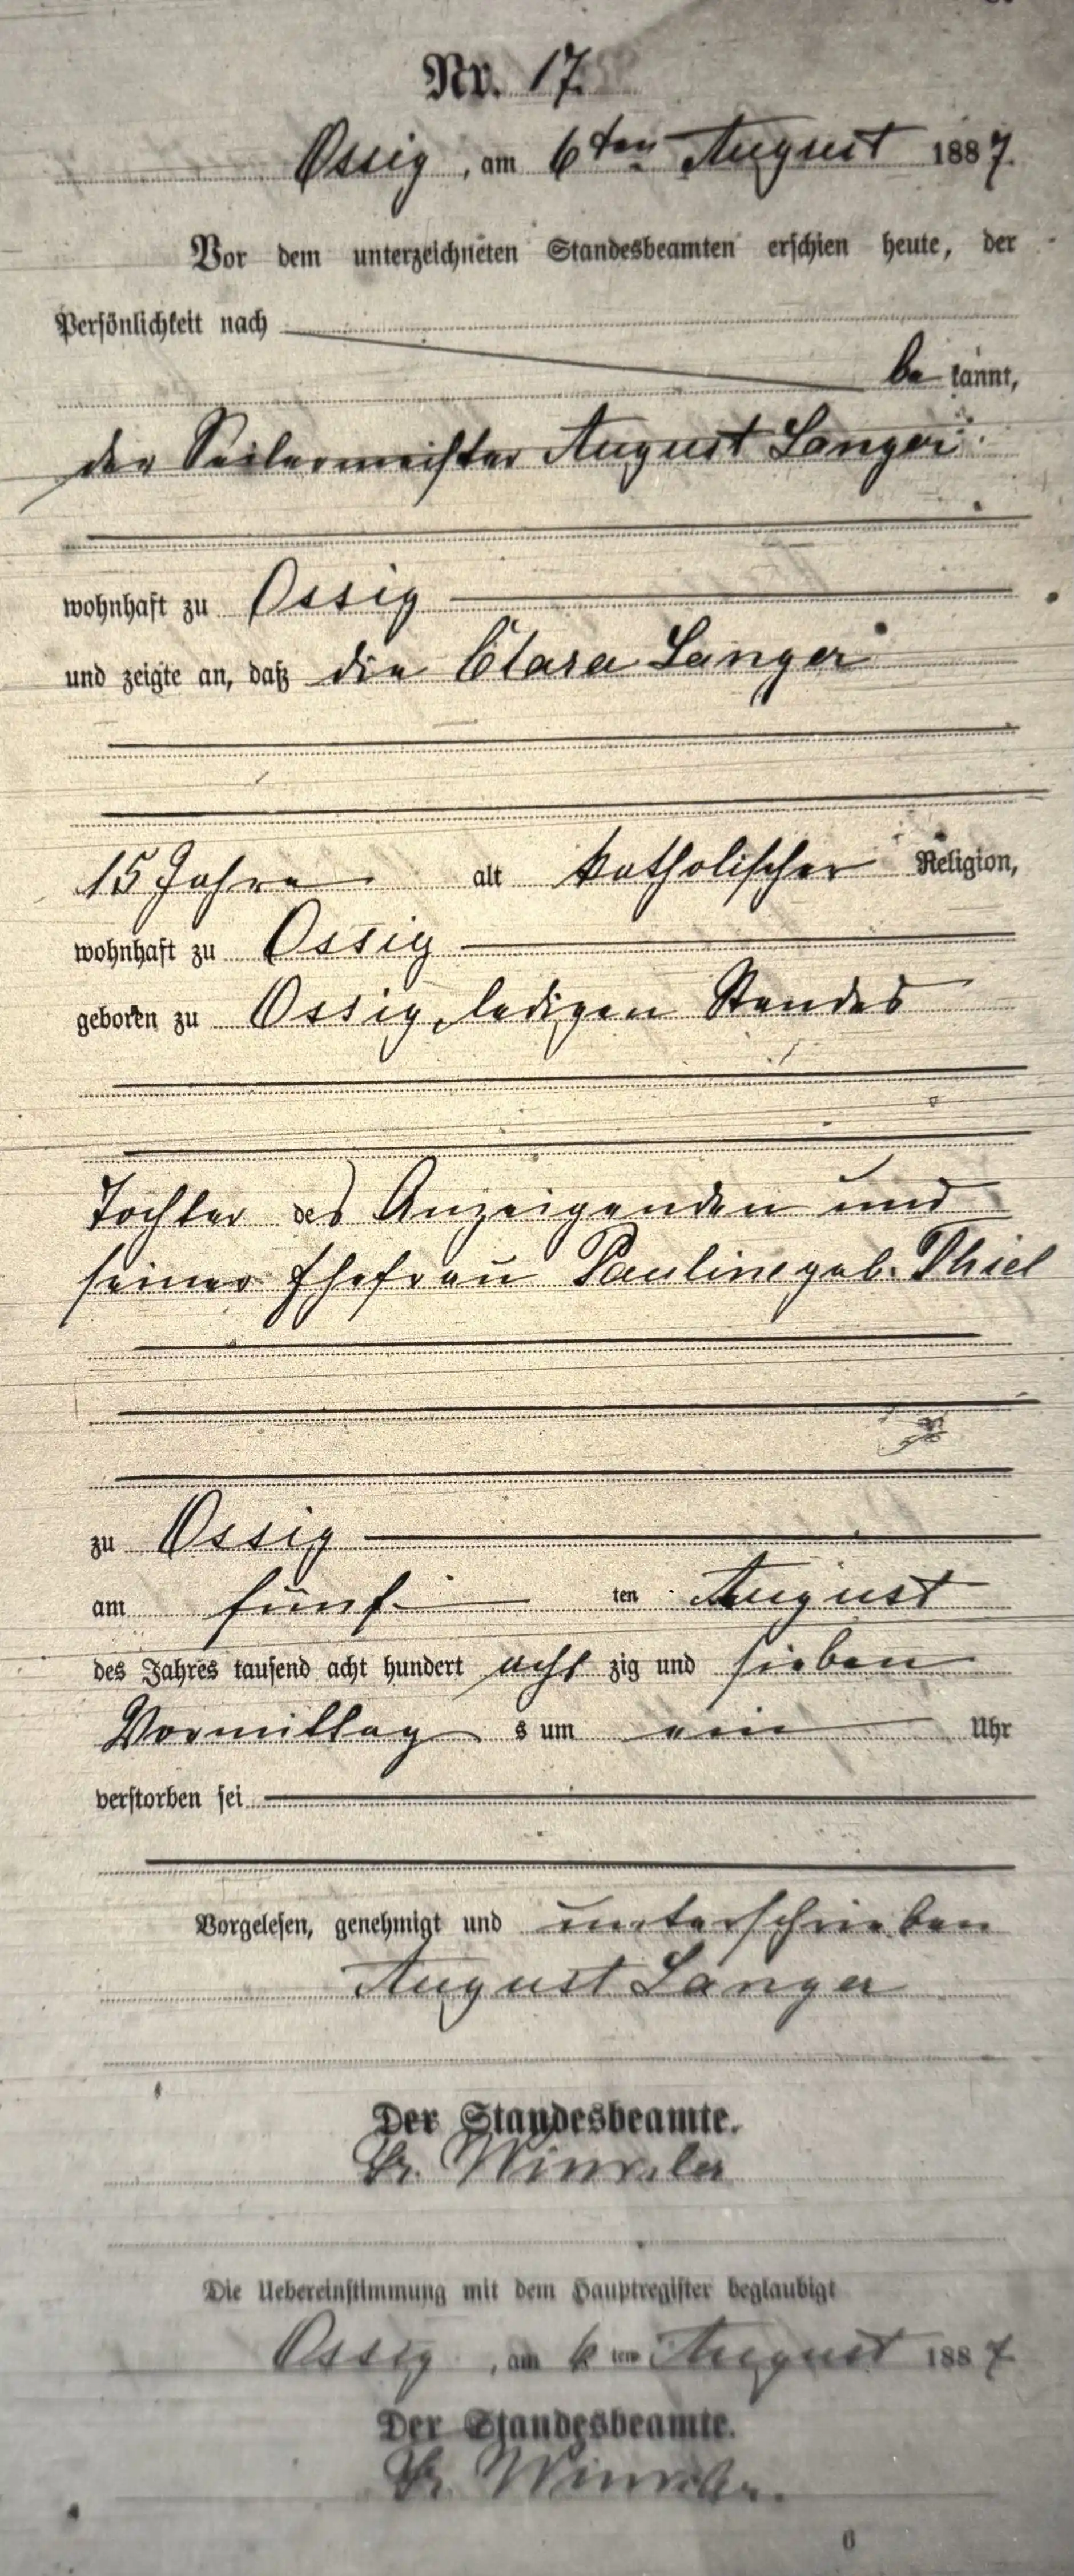 Nr. 17.
Ossig, am 6ten August 1887.
Vor dem unterzeichneten Standesbeamten erschien heute, der
Persönlichkeit nach
be kannt,
der Seilermeister August Langer
wohnhaft zu Ossig
und zeigte an, daß die Clara Langer
15 Jahre alt katholischer Religion,
wohnhaft zu Ossig
geboren zu Ossig, ledigen Standes
Tochter des Anzeigenden und
seiner Ehefrau Pauline geb. Thiel
zu Ossig
am fünf ten August
des Jahres tausend acht hundert acht zig und sieben
Vormittag s um ein Uhr
verstorben sei
Vorgelesen, genehmigt und unterschrieben
August Langer
Der Standesbeamte.
Winkler
Die Uebereinstimmung mit dem Hauptregister beglaubigt
Ossig, am 6 ten August 1887
Der Standesbeamte.
Winkler.
6